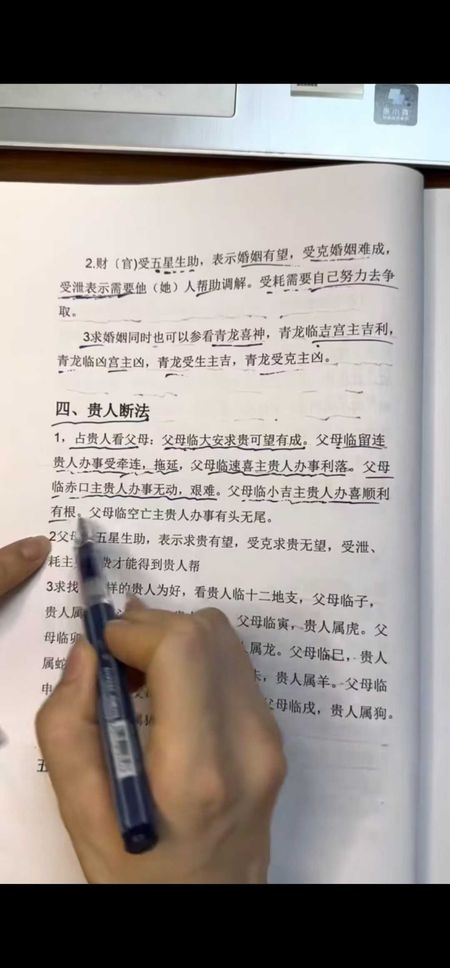 2.财（官)受五星生助，表示婚姻有望，受克婚姻难成，
受泄表示需要他（她）人帮助调解。受耗需要自己努力去争
取。
3求婚姻同时也可以参看青龙喜神，青龙临吉宫主吉利，
青龙临凶宫主凶，青龙受生主吉，青龙受克主凶。
四、贵人断法
1，占贵人看父母：父母临大安求贵可望有成。父母临留连
贵人办事受牵连，拖延，父母临速喜主贵人办事利落。父母
临赤口主贵人办事无动，艰难。父母临小吉主贵人办喜顺利
有根。父母临空亡主贵人办事有头无尾。
2父 五星生助，表示求贵有望，受克求贵无望，受泄、
耗主 贵才能得到贵人帮
3求找 样的贵人为好，看贵人临十二地支，父母临子，
贵人属 父母临寅，贵人属虎。父
母临卯 人属龙。父母临巳，贵人
属蛇 未，贵人属羊。父母临
申 父母临戌，贵人属狗。
五